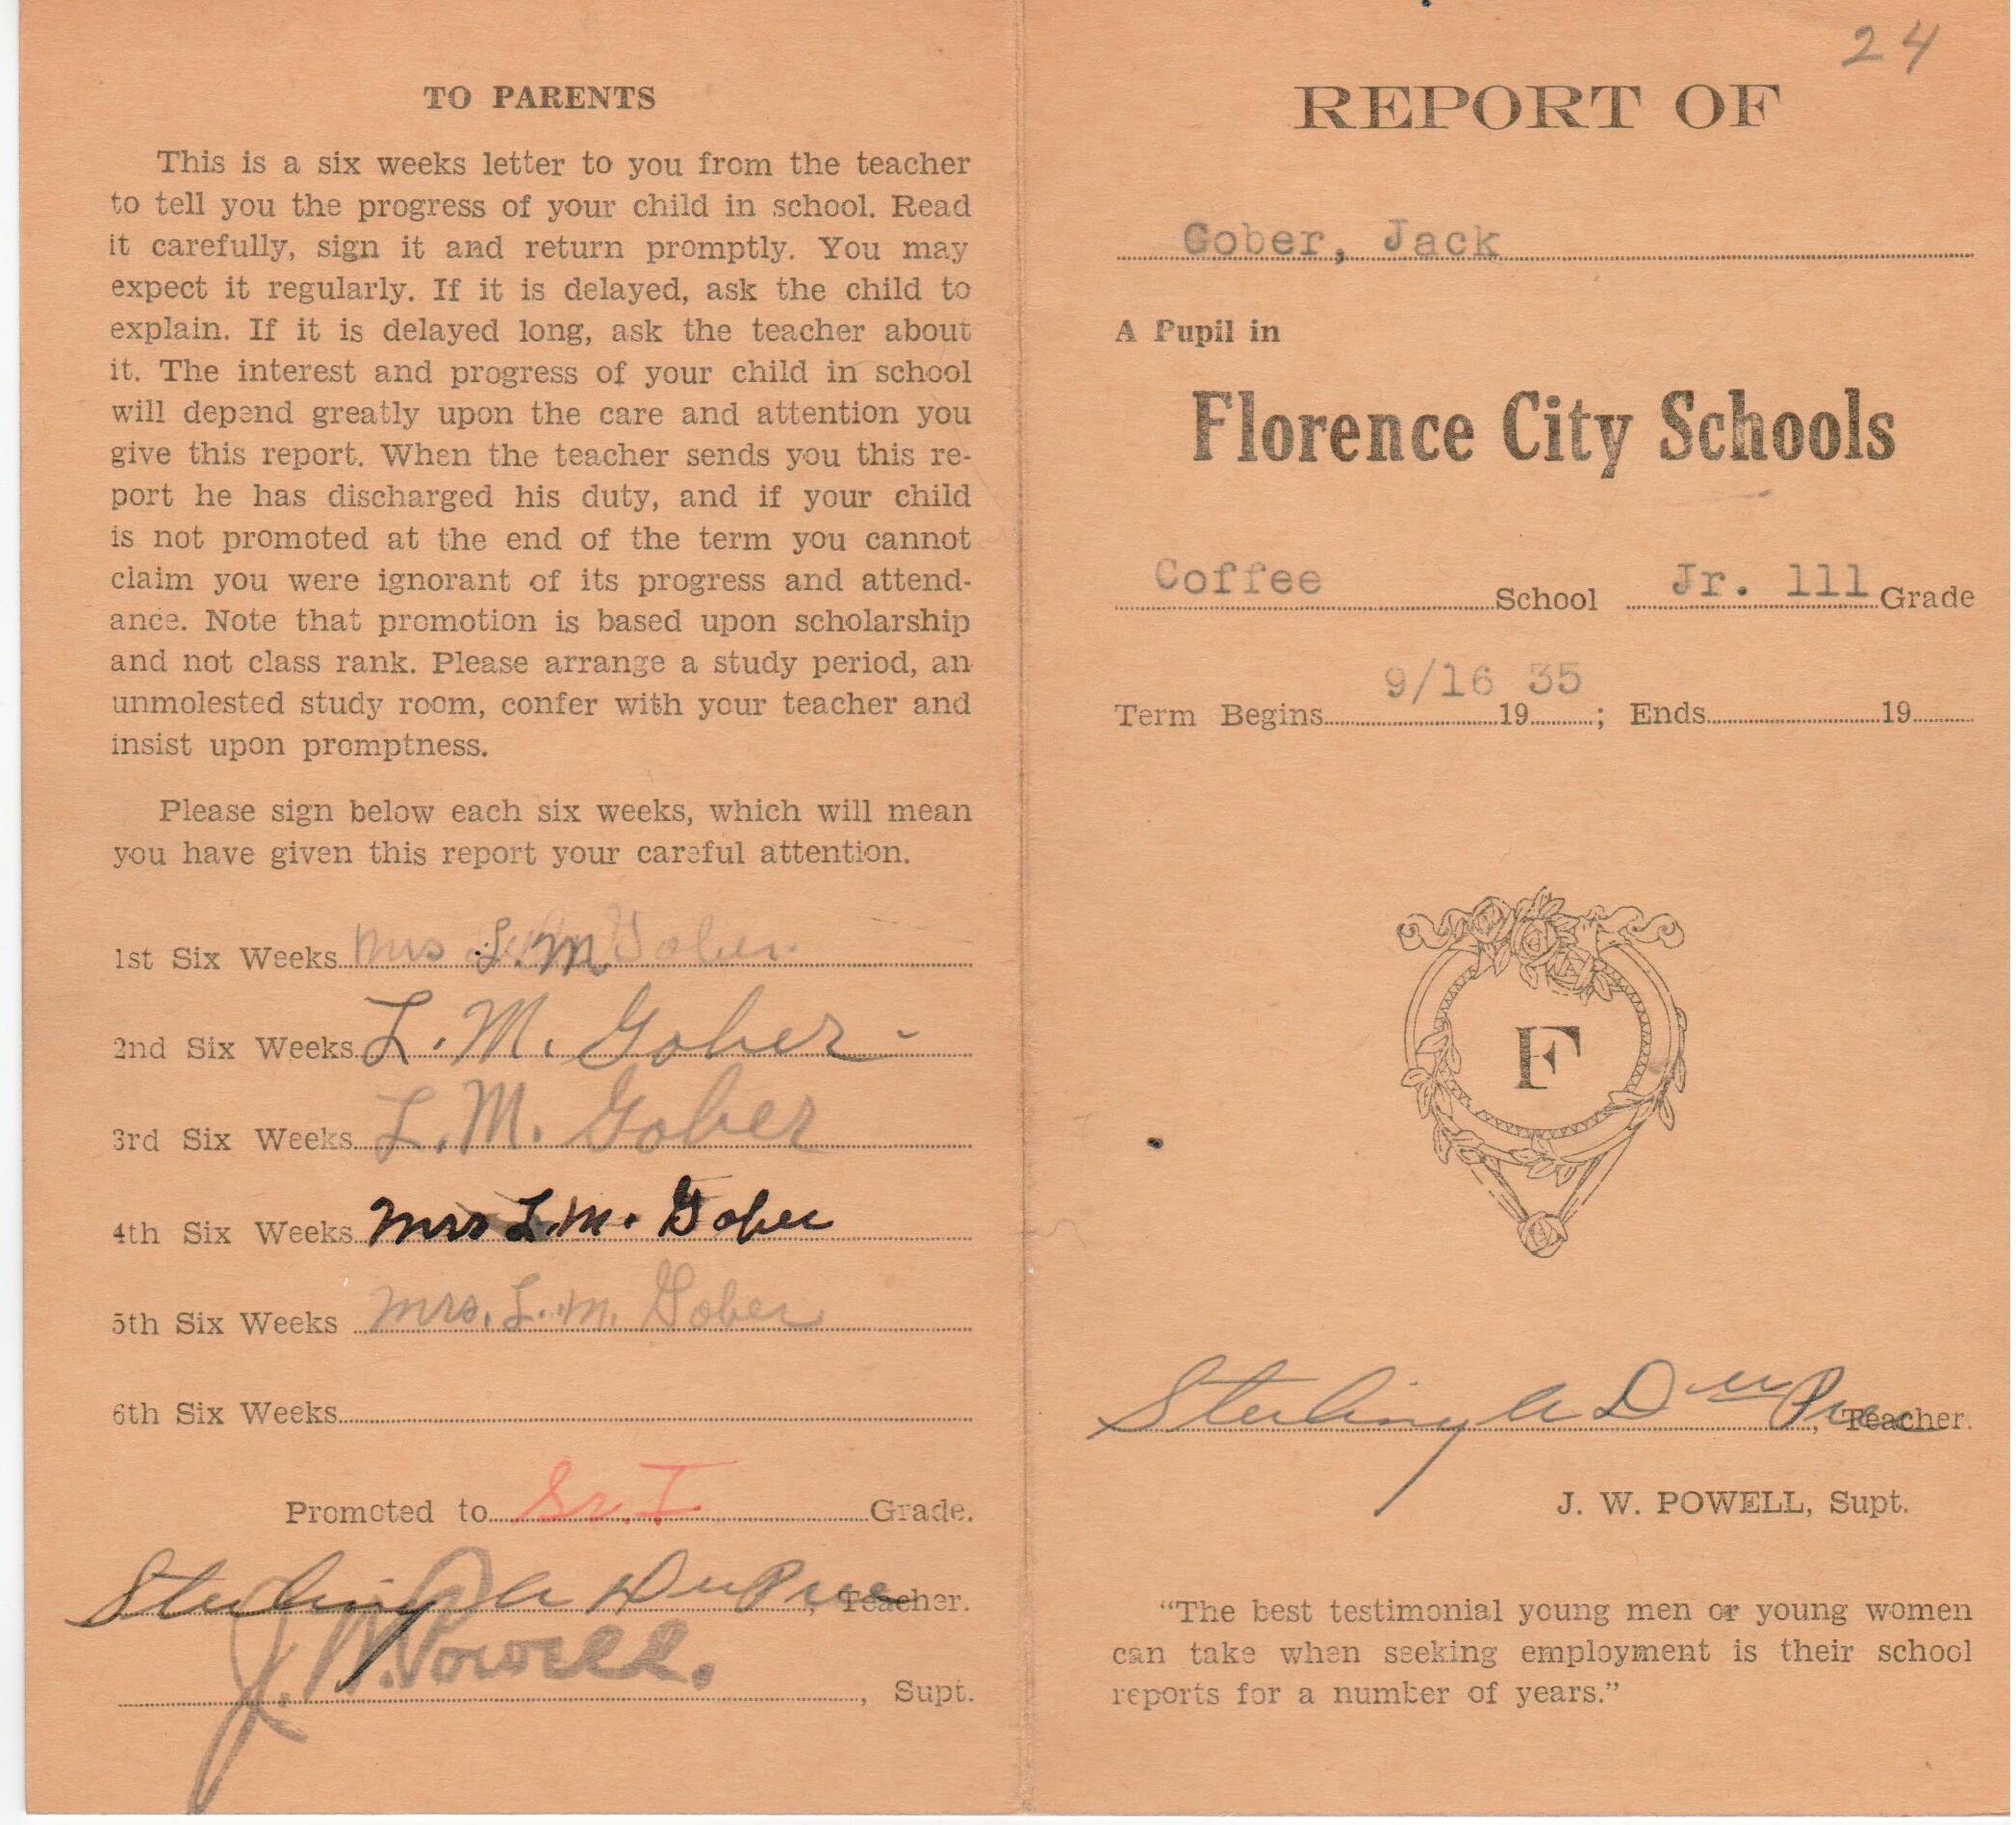 TO PARENTS
This is a six weeks letter to you from the teacher
to tell you the progress of your child in school. Read
it carefully, sign it and return promptly. You may
expect it regularly. If it is delayed, ask the child to
explain. If it is delayed long, ask the teacher about
it. The interest and progress of your child in school
will depend greatly upon the care and attention you
give this report. When the teacher sends you this re-
port he has discharged his duty, and if your child
is not promoted at the end of the term you cannot
claim you were ignorant of its progress and attend-
ance. Note that promotion is based upon scholarship
and not class rank. Please arrange a study period, an
unmolested study room, confer with your teacher and
insist upon promptness.
Please sign below each six weeks, which will mean
you have given this report your careful attention.
1st Six Weeks Mrs L. M Gober.
2nd Six Weeks L. M. Gober -
3rd Six Weeks L. M. Gober
4th Six Weeks Mrs L. M. Gober
5th Six Weeks Mrs. L. M. Gober
6th Six Weeks
Promoted to Sr. I Grade.
Sterling A DuPree, Teacher.
J. W. Powell. , Supt.
24
REPORT OF
Gober, Jack
A Pupil in
Florence City Schools
Coffee School Jr. 111 Grade
Term Begins 9/16 1935; Ends 19
F
Sterling A DuPree, Teacher.
J. W. POWELL, Supt.
“The best testimonial young men or young women
can take when seeking employment is their school
reports for a number of years.”